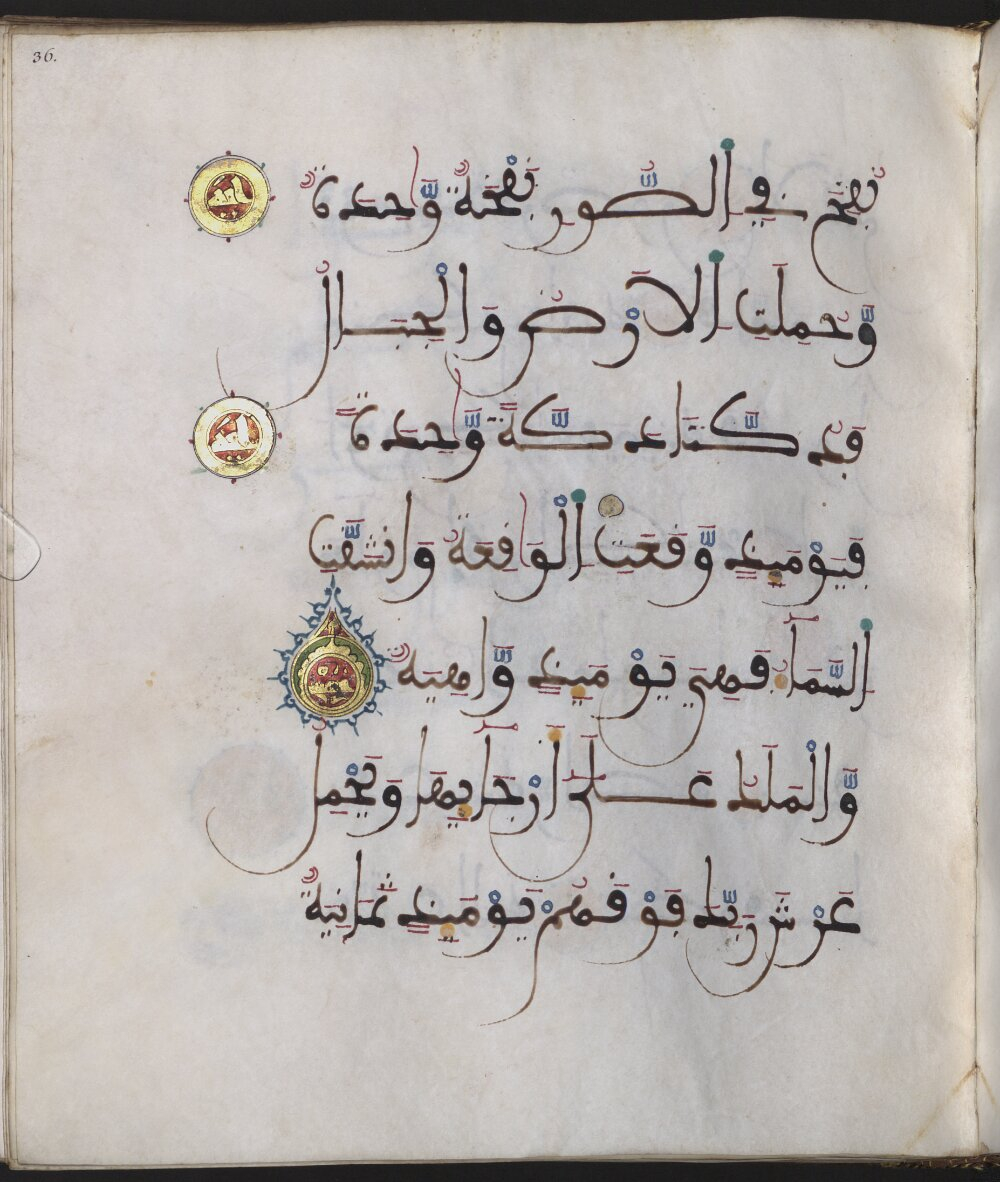 36.
نُفِخَ فِي الصُّورِ نَفْخَةٌ وَّاحِدَةٌ
وَّحُمِلَتِ الَارْضُ وَالْجِبَالُ
فَدُكَّتَا دَكَّةً وَّاحِدَةً
فَيَوْمَئِذٍ وَّقَعَتِ الْوَاقِعَةُ وَانشَقَّتِ
السَّمَآءُ فَهِيَ يَوْمَئِذٍ وَّاهِيَةٌ
وَّالْمَلَكُ عَلَىٰٓ أَرْجَآئِهَا وَيَحْمِلُ
عَرْشَ رَبِّكَ فَوْقَهُمْ يَوْمَئِذٍ ثَمَٰنِيَةٌ